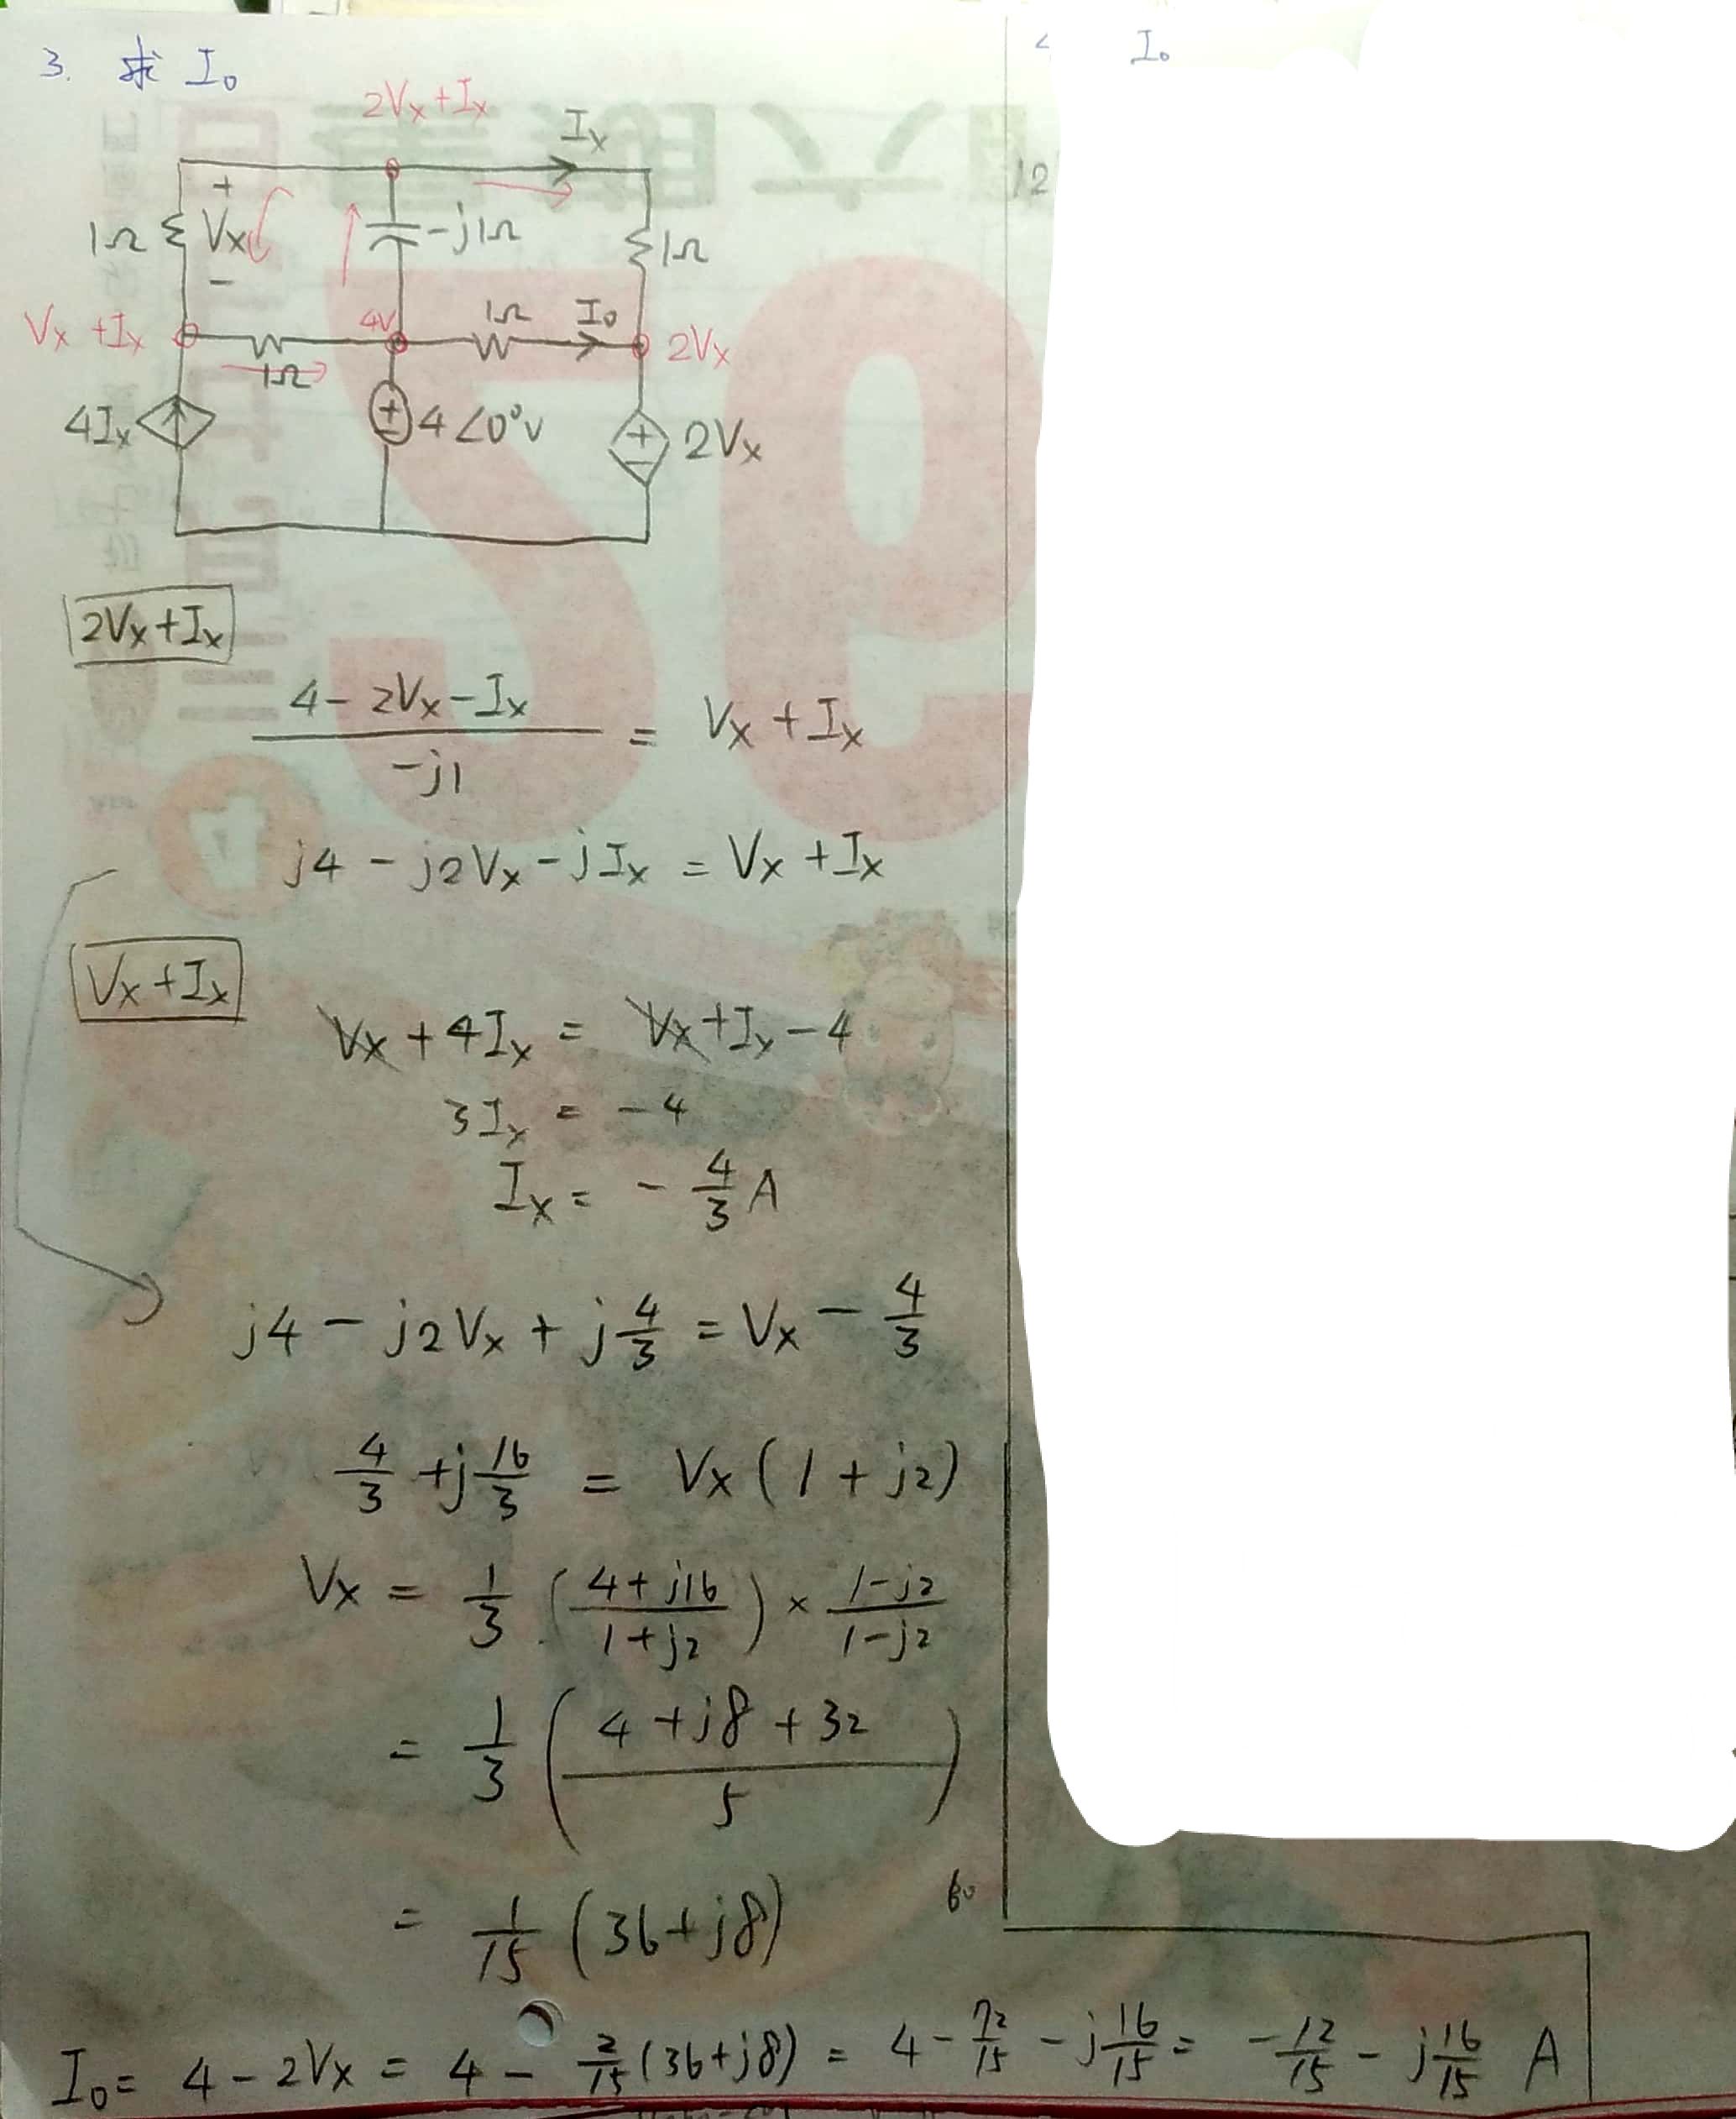 3. 求 I₀
2Vx+Ix
Ix
1Ω
+
Vx
−
-j1Ω
1Ω
Vx+Ix
4V
1Ω
I₀
2Vx
1Ω
4Ix
+
−
4∠0°V
+
−
2Vx
2Vx+Ix
(4-2Vx-Ix)/(-j1) = Vx+Ix
j4-j2Vx-jIx = Vx+Ix
Vx+Ix
Vx+4Ix = Vx+Ix-4
3Ix = -4
Ix = -4/3 A
j4-j2Vx+j4/3 = Vx-4/3
4/3+j16/3 = Vx(1+j2)
Vx = 1/3 ((4+j16)/(1+j2)) × (1-j2)/(1-j2)
= 1/3 ((4+j8+32)/5)
= 1/15 (36+j8)
I₀ = 4-2Vx = 4-2/15(36+j8) = 4-72/15-j16/15 = -12/15-j16/15 A
I₀
12